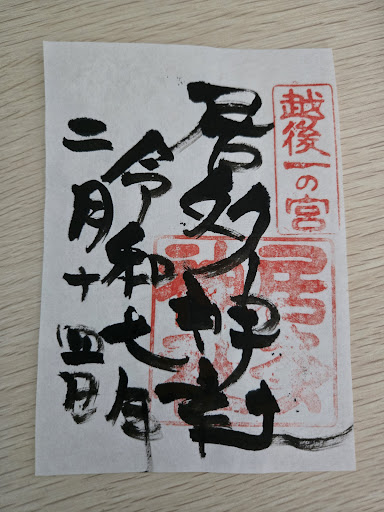 越後一の宮
居多神社
令和七年
二月十四日